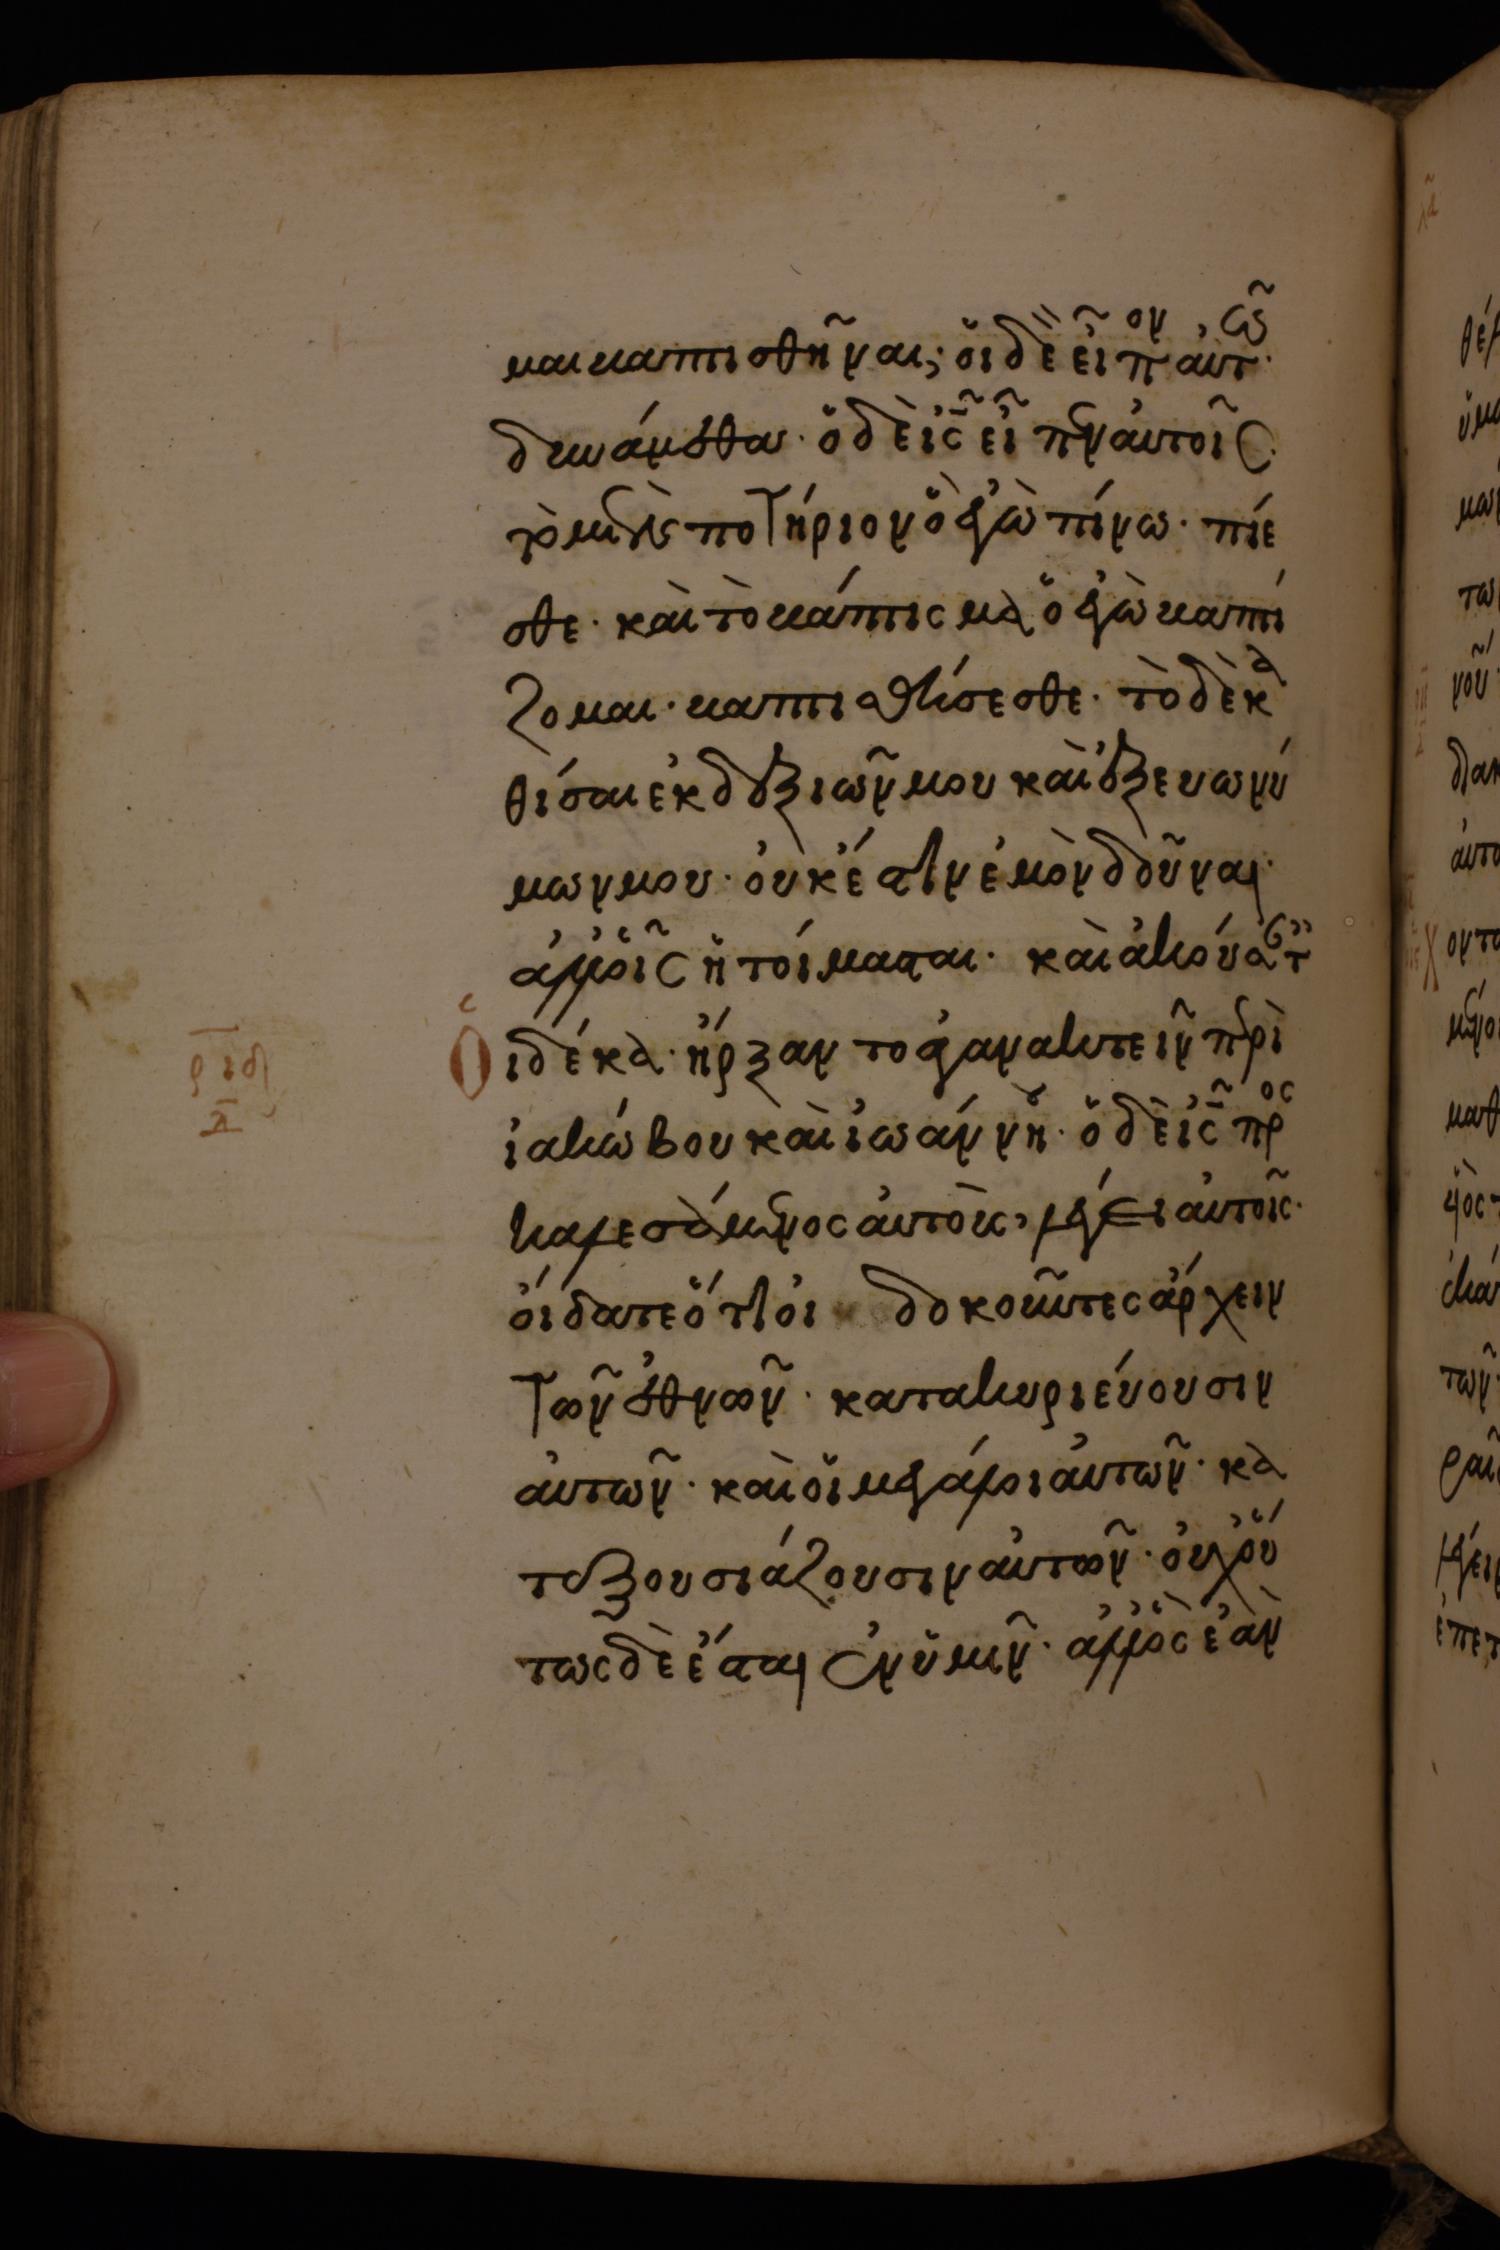 μαι βαπτισθῆναι; οἱ δὲ εἶπον αὐτῶ·
δυνάμεθα· ὁ δὲ ις εἶπεν αὐτοῖς·
τὸ μὲν ποτήριον ὃ ἐγὼ πίνω· πίε
σθε· καὶ τὸ βάπτισμα ὃ ἐγὼ βαπτί
ζομαι· βαπτισθήσεσθε· τὸ δὲ κα
θίσαι ἐκ δεξιῶν μου καὶ ἐξ εὐωνύ
μων μου· οὐκ έστιν ἐμὸν δοῦναι·
ἀλλ' οἷς ἡτοίμασται· καὶ ἀκούσαντες
οἱ δέκα· ἤρξαντο ἀγανακτεῖν περὶ
ἰακώβου καὶ ἰωάννου· ὁ δὲ ις προς
καλεσάμενος αὐτοὺς, λέγει αὐτοῖς·
οἴδατε ὅτι οἱ δοκοῦντες ἄρχειν
τῶν ἐθνῶν· κατακυριεύουσιν
αὐτῶν· καὶ οἱ μεγάλοι αὐτῶν· κα
τεξουσιάζουσιν αὐτῶν· οὐχ οὕ
τως δὲ ἔσται ἐν ὑμῖν· ἀλλ' ὃς ἐὰν